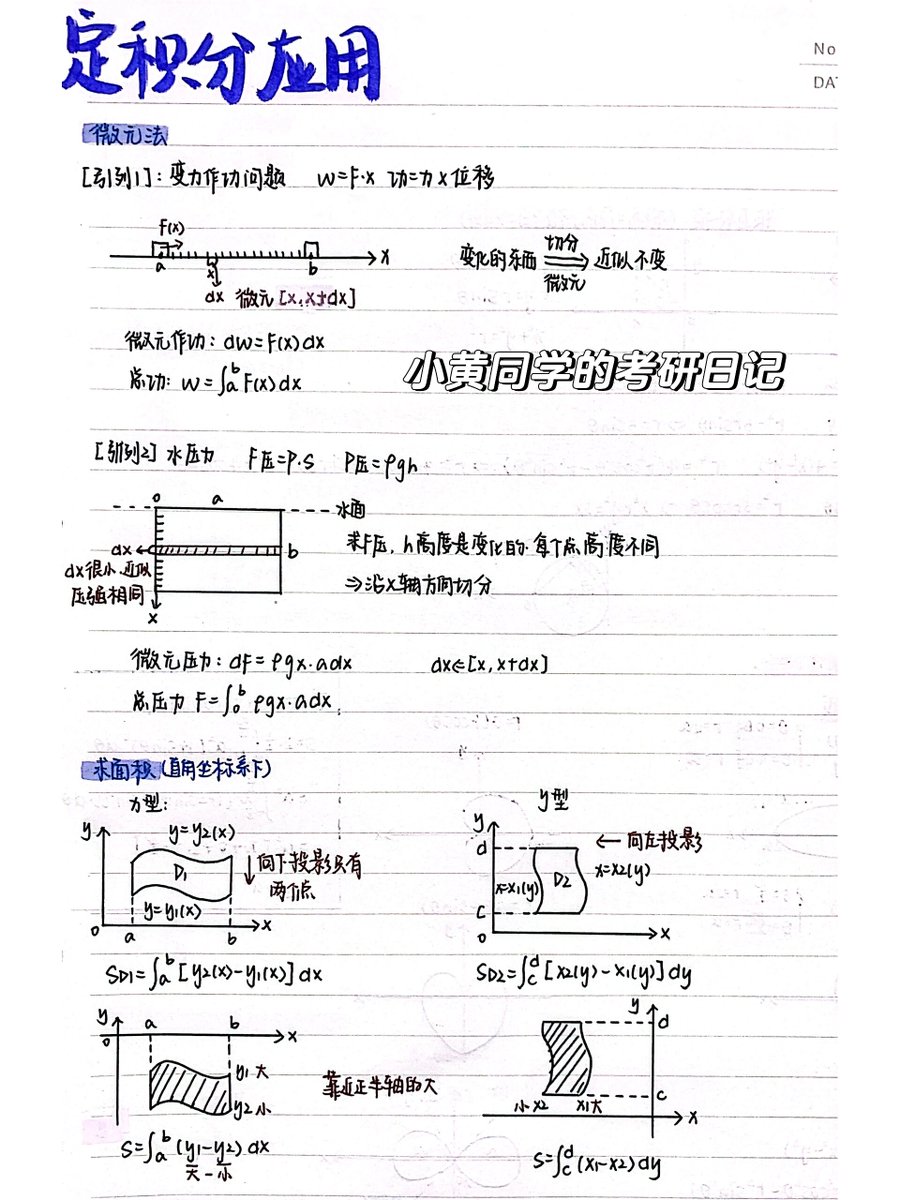 定积分应用
No
DA
微元法
[引例1]：变力作功问题 W=F·x 功=力×位移
F(x)
a b x
x
dx 微元[x,x+dx]
变化的东西 切分 微元 近似不变
微元作功：dw=F(x)dx
总功：W=∫ₐᵇ F(x)dx
小黄同学的考研日记
[引例2] 水压力 F压=P·S P压=ρgh
0 a 水面
dx b
dx很小,近似
压强相同
x
求F压,h高度是变化的.每个点高度不同
⇒沿x轴方向切分
微元压力：dF=ρgx·adx dx∈[x,x+dx]
总压力 F=∫₀ᵇ ρgx·adx
求面积(直角坐标系下)
y型
y
y=y2(x)
D1
y=y1(x)
0 a b x
向下投影只有
两个点
y
d
c
0 x
x=x1(y) D2 x=x2(y)
←向左投影
SD1=∫ₐᵇ[y2(x)-y1(x)]dx
SD2=∫_c^d[x2(y)-x1(y)]dy
y
0 a b x
y1大
y2小
靠近正半轴的大
y
d
c
小x2 x1大 x
S=∫ₐᵇ(y1-y2)dx
大-小
S=∫_c^d(x1-x2)dy